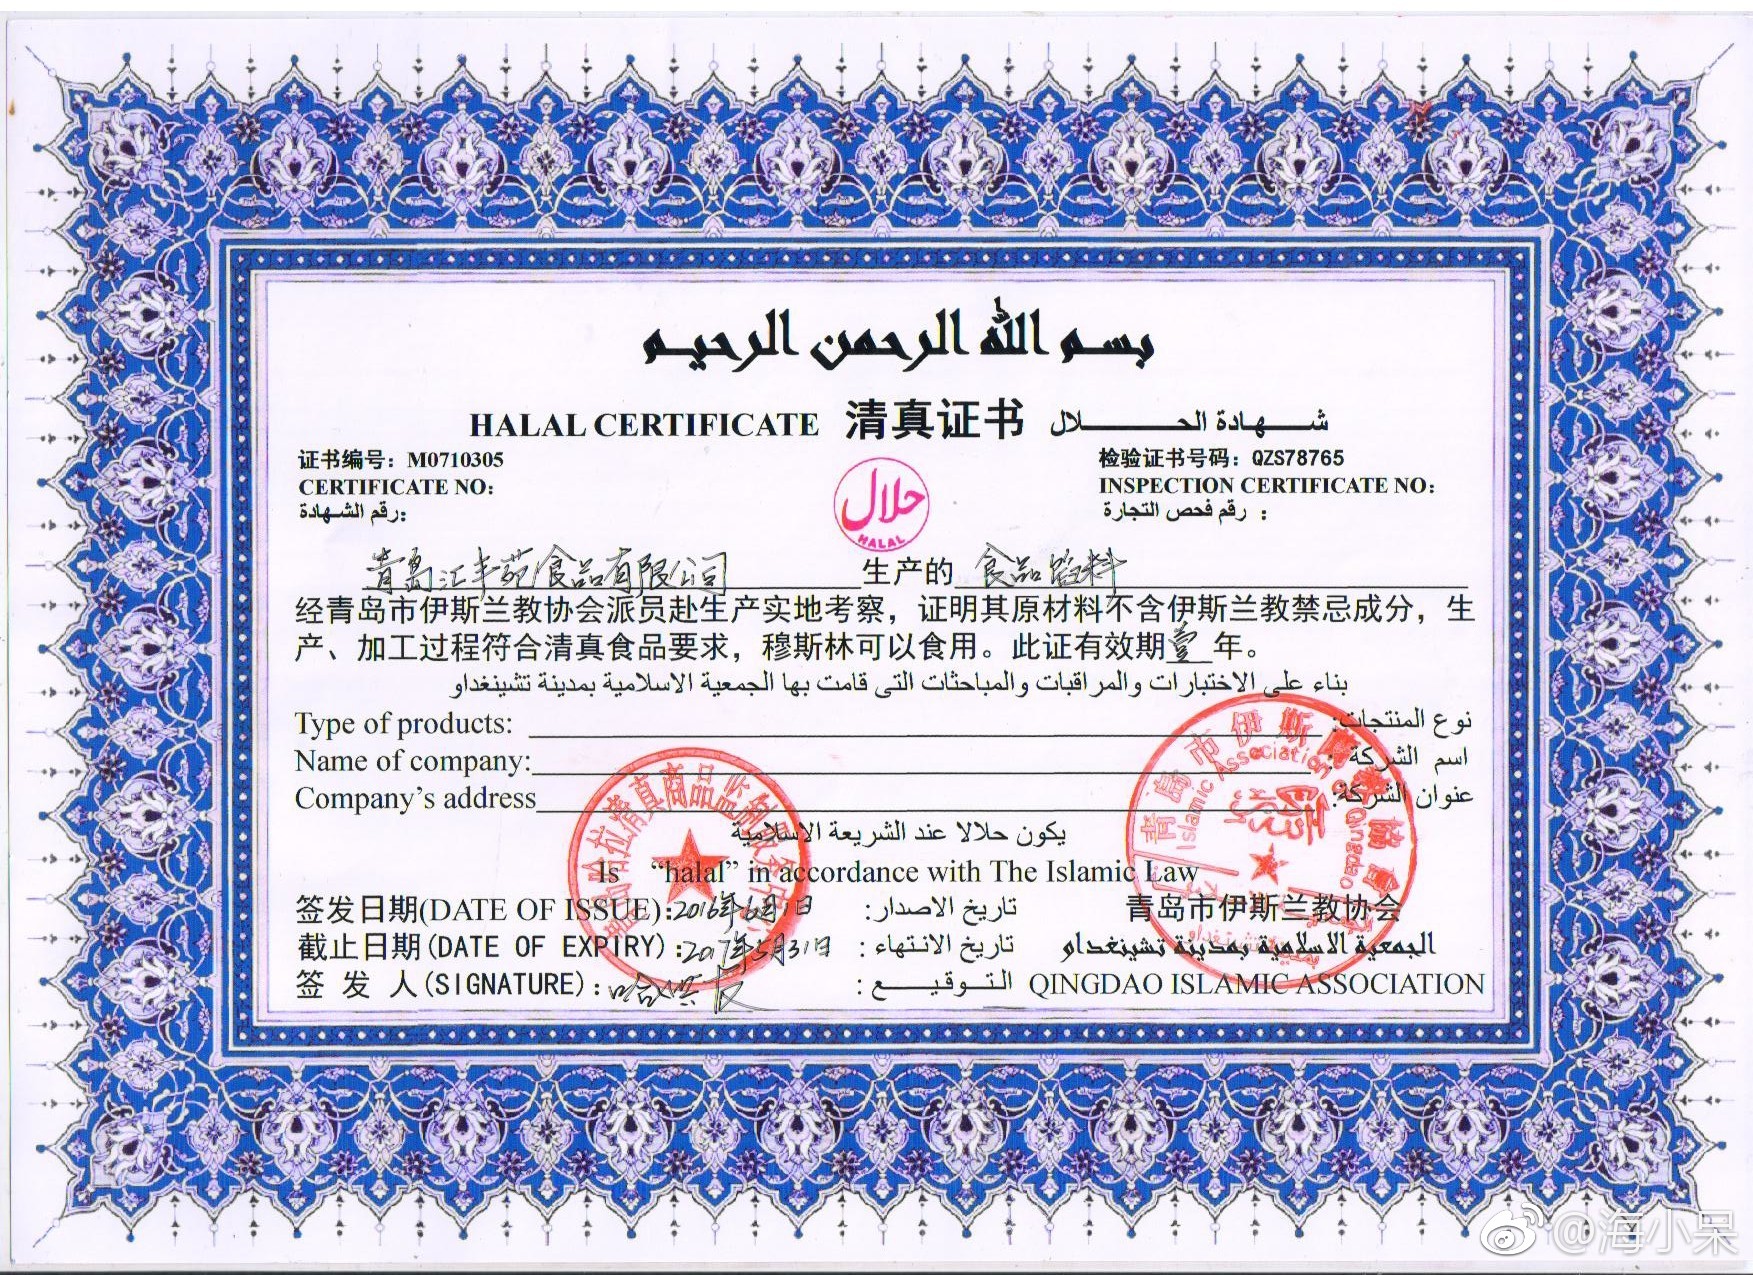 بسم الله الرحمن الرحيم
HALAL CERTIFICATE 清真证书 شهادة الحلال
证书编号：M0710305
CERTIFICATE NO:
رقم الشهادة:
检验证书号码：QZS78765
INSPECTION CERTIFICATE NO:
رقم فحص التجارة :
حلال
HALAL
青岛汇丰苑食品有限公司 生产的 食品馅料
经青岛市伊斯兰教协会派员赴生产实地考察，证明其原材料不含伊斯兰教禁忌成分，生
产、加工过程符合清真食品要求，穆斯林可以食用。此证有效期壹年。
بناء على الاختبارات والمراقبات والمباحثات التى قامت بها الجمعية الاسلامية بمدينة تشينغداو
Type of products: نوع المنتجات:
Name of company: اسم الشركة:
Company's address عنوان الشركة:
يكون حلالا عند الشريعة الاسلامية
Is "halal" in accordance with The Islamic Law
签发日期(DATE OF ISSUE):2016年6月1日 تاريخ الاصدار: 青岛市伊斯兰教协会
截止日期(DATE OF EXPIRY):2017年5月31日 تاريخ الانتهاء: الجمعية الاسلامية بمدينة تشينغداو
签 发 人(SIGNATURE): التوقيع: QINGDAO ISLAMIC ASSOCIATION
哈拉清真商品监制服务中心
青岛市伊斯兰教协会
Islamic Association of Qingdao
@海小呆